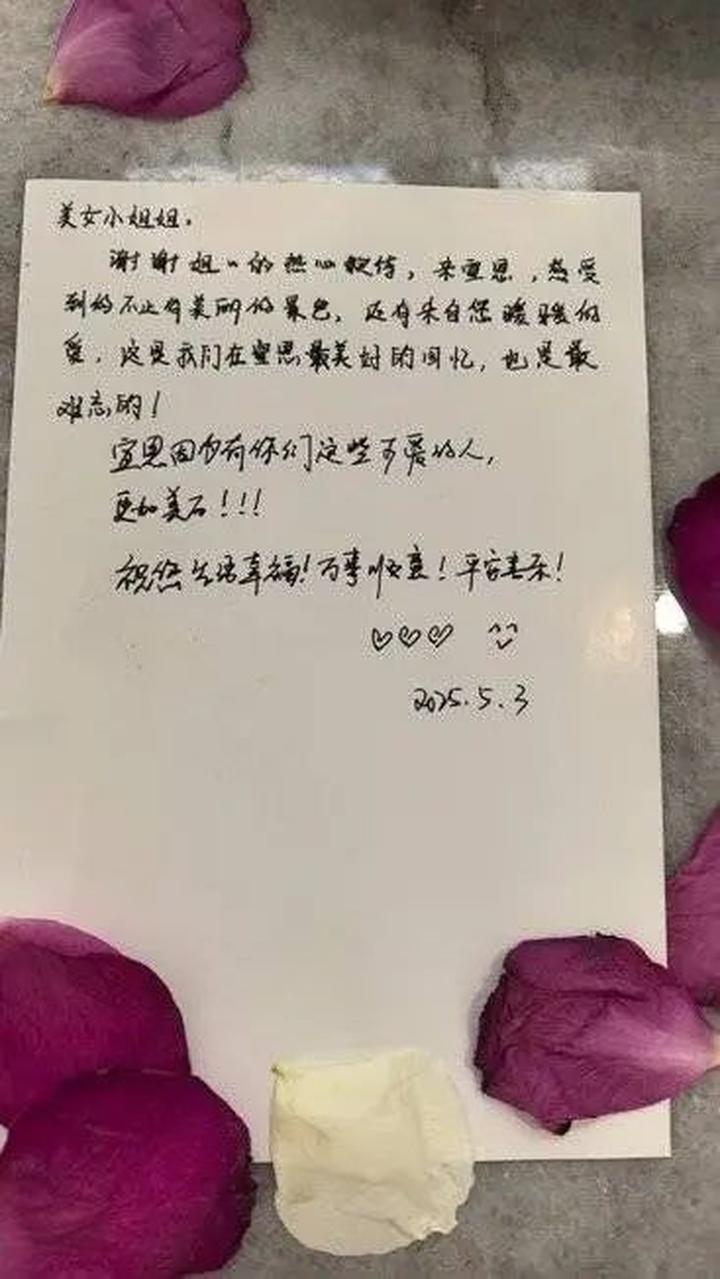 美女小姐姐.
谢谢姐〃的热心款待,来宣恩,感受
到的不止有美丽的景色,还有来自您暖暖的
爱,这是我们在宣恩最美好的回忆,也是最
难忘的!
宣恩因为有你们这些可爱的人,
更加美丽!!!
祝您生活幸福!万事顺意!平安喜乐!
2025.5.3